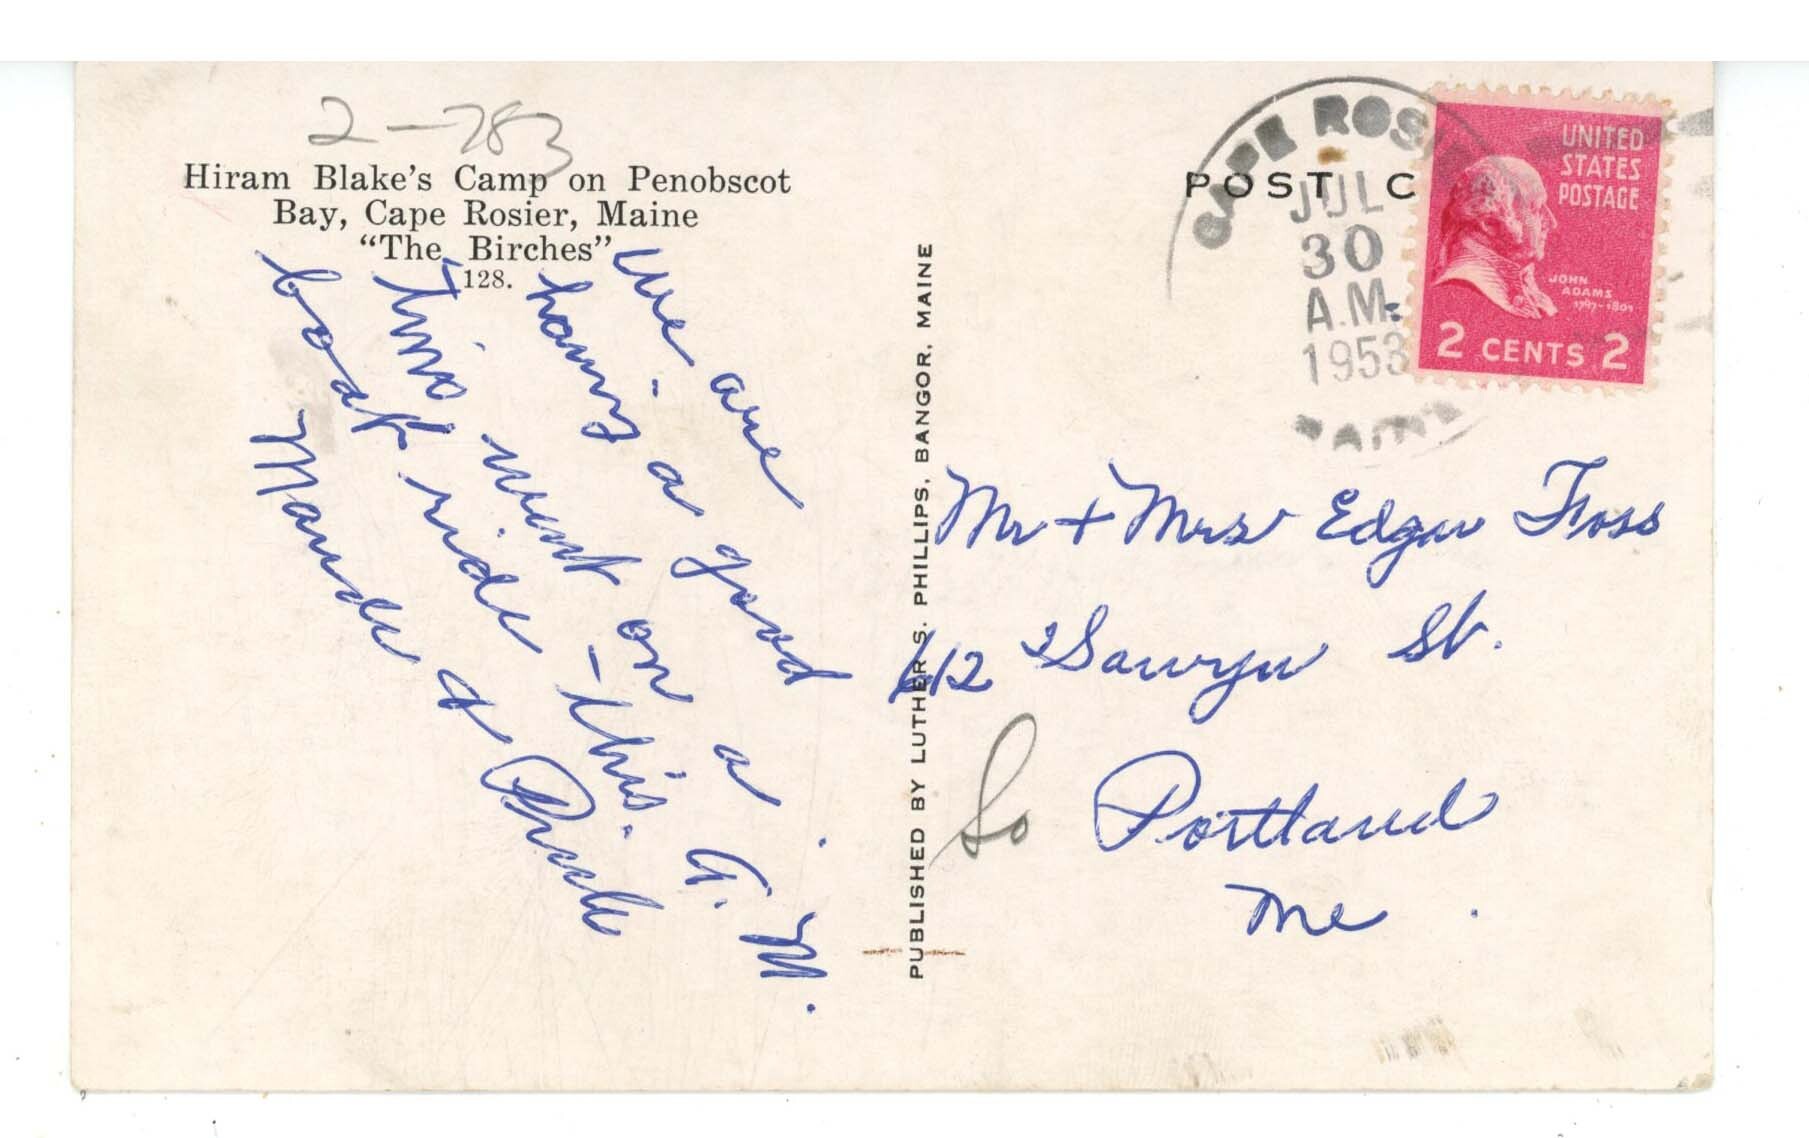 2-783
Hiram Blake's Camp on Penobscot
Bay, Cape Rosier, Maine
"The Birches"
128.
We are
having a good
time. went on a
boat ride - this A.M.
Maude &
PUBLISHED BY LUTHER S. PHILLIPS, BANGOR, MAINE
POST C
CAPE ROSIER
JUL
30
A.M.
1953
MAINE
UNITED
STATES
POSTAGE
JOHN
ADAMS
1797-1801
2 CENTS 2
Mr + Mrs Edgar Foss
612 Sawyer St.
So Portland
Me.